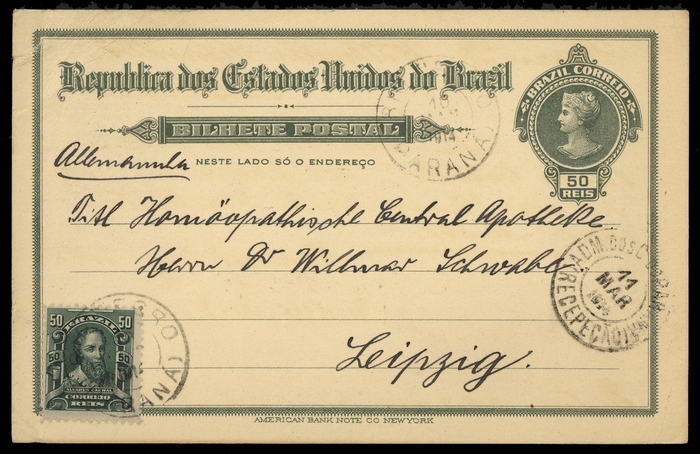 Republica dos Estados Unidos do Brazil
BILHETE POSTAL
NESTE LADO SÓ O ENDEREÇO
BRAZIL CORREIO
50
REIS
1914
PARANÁ
Allemanha
Titl Homöopathische Central Apotheke
Herrn Dr Willmar Schwabe
Leipzig.
ADM. DOS CORR
11
MAR
1914
RECEPEÇÃO
50 BRAZIL 50
50 50
ALVARES CABRAL
CORREIO
REIS
NEGRO
PARANÁ
AMERICAN BANK NOTE CO NEW YORK